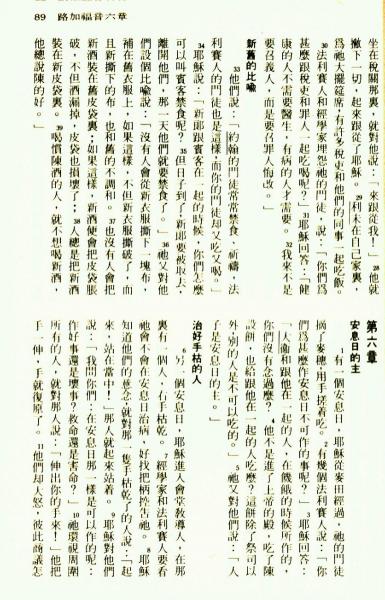 89 路加福音六章
坐在稅關那裏，就對他說：「來跟從我！」28他就
撇下一切，起來跟從了耶穌。29利未在自己家裏，
爲祂大擺筵席；有許多稅吏和他們的同事一起吃飯。
30法利賽人和經學家埋怨祂的門徒，說：「你們爲
甚麼跟稅吏和罪人一起吃喝呢？」31耶穌回答：「健
康的人不需要醫生，有病的人才需要。32我來不是
要召義人，而是要召罪人悔改。」
新舊的比喻
33他們說：「約翰的門徒常常禁食、祈禱，法
利賽人的門徒也是這樣；而你的門徒却又吃又喝。」
34耶穌說：「新郎跟賓客在一起的時候，你們怎麼
可以叫賓客禁食呢？35但日子到了，新郎要被取去，
離開他們，那一天他們就要禁食了。」36祂又對他
們設個比喻說：「沒有人會從新衣服撕下一塊布，
補在舊衣服上，如果這樣，不但新衣服撕破了，而
且新撕下的布，也和舊的不調和。37也沒有人會把
新酒裝在舊皮袋裏；如果這樣，新酒便會把皮袋脹
破，不但酒漏掉，皮袋也損壞了；38人總是把新酒
裝在新皮袋裏。39喝慣陳酒的人，就不想喝新酒，
他總說陳的好。」
第六章
安息日的主
1有一個安息日，耶穌從麥田經過，祂的門徒
摘了麥穗，用手搓着吃。2有幾個法利賽人說：「你
們爲甚麼作安息日不可作的事呢？」3耶穌回答：
「大衞和跟他在一起的人，在饑餓的時候所作的，
你們沒有念過麼？4他不是進了上帝的殿，吃了陳
設餅，也給跟他在一起的人吃麼？這餅除了祭司以
外，別的人是不可以吃的。」5祂又對他們說：「人
子是安息日的主。」
治好手枯的人
6另一個安息日，耶穌進入會堂教導人，在那
裏有一個人，右手枯乾。7經學家和法利賽人要看
祂會不會在安息日治病，好找把柄控告祂。8耶穌
知道他們的意念，就對那一隻手枯乾了的人說：「起
來，站在當中！」那人就起來站着。9耶穌對他們
說：「我問你們：在安息日那一樣是可以作的呢：
作好事還是壞事？救命還是害命？」10祂環視周圍
所有的人，就對那人說：「伸出你的手來！」他把
手一伸，手就復原了。11他們却大怒，彼此商議怎